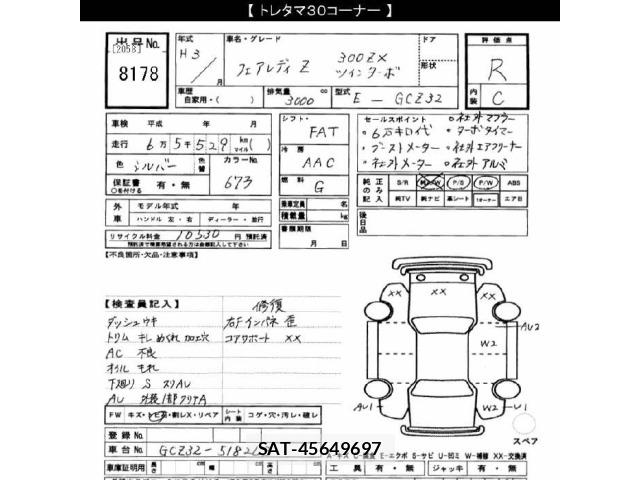 【 トレタマ30コーナー 】
出品No.
[2058]
8178
年式
H3
車名・グレード
フェアレディZ 300ZX
ツインターボ
ドア
形状
評価点
R
内装
C
車歴
自家用・( )
排気量
3000 cc
型式
E - GCZ32
車検 平成 年 月
走行 6万5千529 km マイル ( )
色 シルバー
色替
カラーNo.
673
保証書 有・無
シフト FAT
冷房 AAC
燃料 G
乗車定員 名
積載量 kg
書類期限
月 日
セールスポイント
・社外マフラー
・6万キロ代 ・ターボタイマー
・ブーストメーター ・社外エアクリーナー
・社外メーター ・社外アルミ
純正のみ記入
S/R P/S P/W ABS
純TV 純ナビ 革シート 1オーナー エア日
後日品
外車
モデル年式 年
ハンドル 左・右 ディーラー・並行
リサイクル料金 10530 円 預託済
預託済で廃棄希望される方は金額記入して下さい
【不良箇所・欠品・注意事項】
【検査員記入】
修復
ダッシュウキ 右Fインパネ歪
トリム キレ めくれ 加工穴 コアサポート XX
AC 不良
オイル もれ
下廻り S スリAU
AU 外装1部クリアA
FW キズ・トビ石・割レX・リペア
シート内装
コゲ・穴・汚レ・破レ
登録No.
車台No. GCZ32-5182
SAT-45649697
車庫証明用 長さ cm 幅 cm 高さ cm
XX XX XX
AU2
W2
AU1
W2
U1
スペア
E-エクボ S-サビ U-凹ミ W-補修 XX-交換済
工具 有・無 ジャッキ 有・無